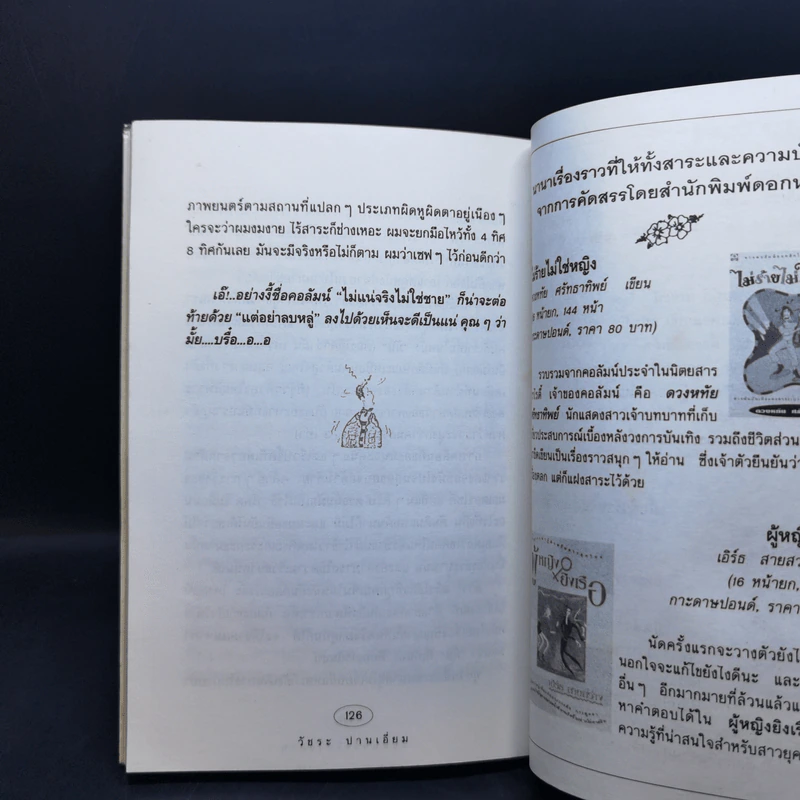 ภาพยนตร์ตามสถานที่แปลก ๆ ประเภทผิดหูผิดตาอยู่เนือง ๆ
ใครจะว่าผมงมงาย ไร้สาระก็ช่างเหอะ ผมจะยกมือไหว้ทั้ง 4 ทิศ
8 ทิศกันเลย มันจะมีจริงหรือไม่ก็ตาม ผมว่าเซฟ ๆ ไว้ก่อนดีกว่า
เอ๊!..อย่างงี้ชื่อคอลัมน์ “ไม่แน่จริงไม่ใช่ชาย” ก็น่าจะต่อ
ท้ายด้วย “แต่อย่าลบหลู่” ลงไปด้วยเห็นจะดีเป็นแน่ คุณ ๆ ว่า
มั้ย....บรื๋อ...อ...อ
126
วัชระ ปานเอี่ยม
นานาเรื่องราวที่ให้ทั้งสาระและความบั
จากการคัดสรรโดยสำนักพิมพ์ดอก
ร้ายไม่ใช่หญิง
ศรัทธาทิพย์ เขียน
หน้ายก, 144 หน้า
กระดาษปอนด์, ราคา 80 บาท)
ไม่ร้ายไม่
รวบรวมจากคอลัมน์ประจำในนิตยสาร
เจ้าของคอลัมน์ คือ ดวงหทัย
นักแสดงสาวเจ้าบทบาทที่เก็บ
ประสบการณ์เบื้องหลังวงการบันเทิง รวมถึงชีวิตส่วน
เขียนเป็นเรื่องราวสนุก ๆ ให้อ่าน ซึ่งเจ้าตัวยืนยันว่า
แต่ก็แฝงสาระไว้ด้วย
ผู้หญิ
เอิร์ธ สายสว
(16 หน้ายก,
กะดาษปอนด์, ราคา
นัดครั้งแรกจะวางตัวยังไ
นอกใจจะแก้ไขยังไงดีนะ และ
อื่น ๆ อีกมากมายที่ล้วนแล้วแ
หาคำตอบได้ใน ผู้หญิงยิงเรื
ความรู้ที่น่าสนใจสำหรับสาวยุค